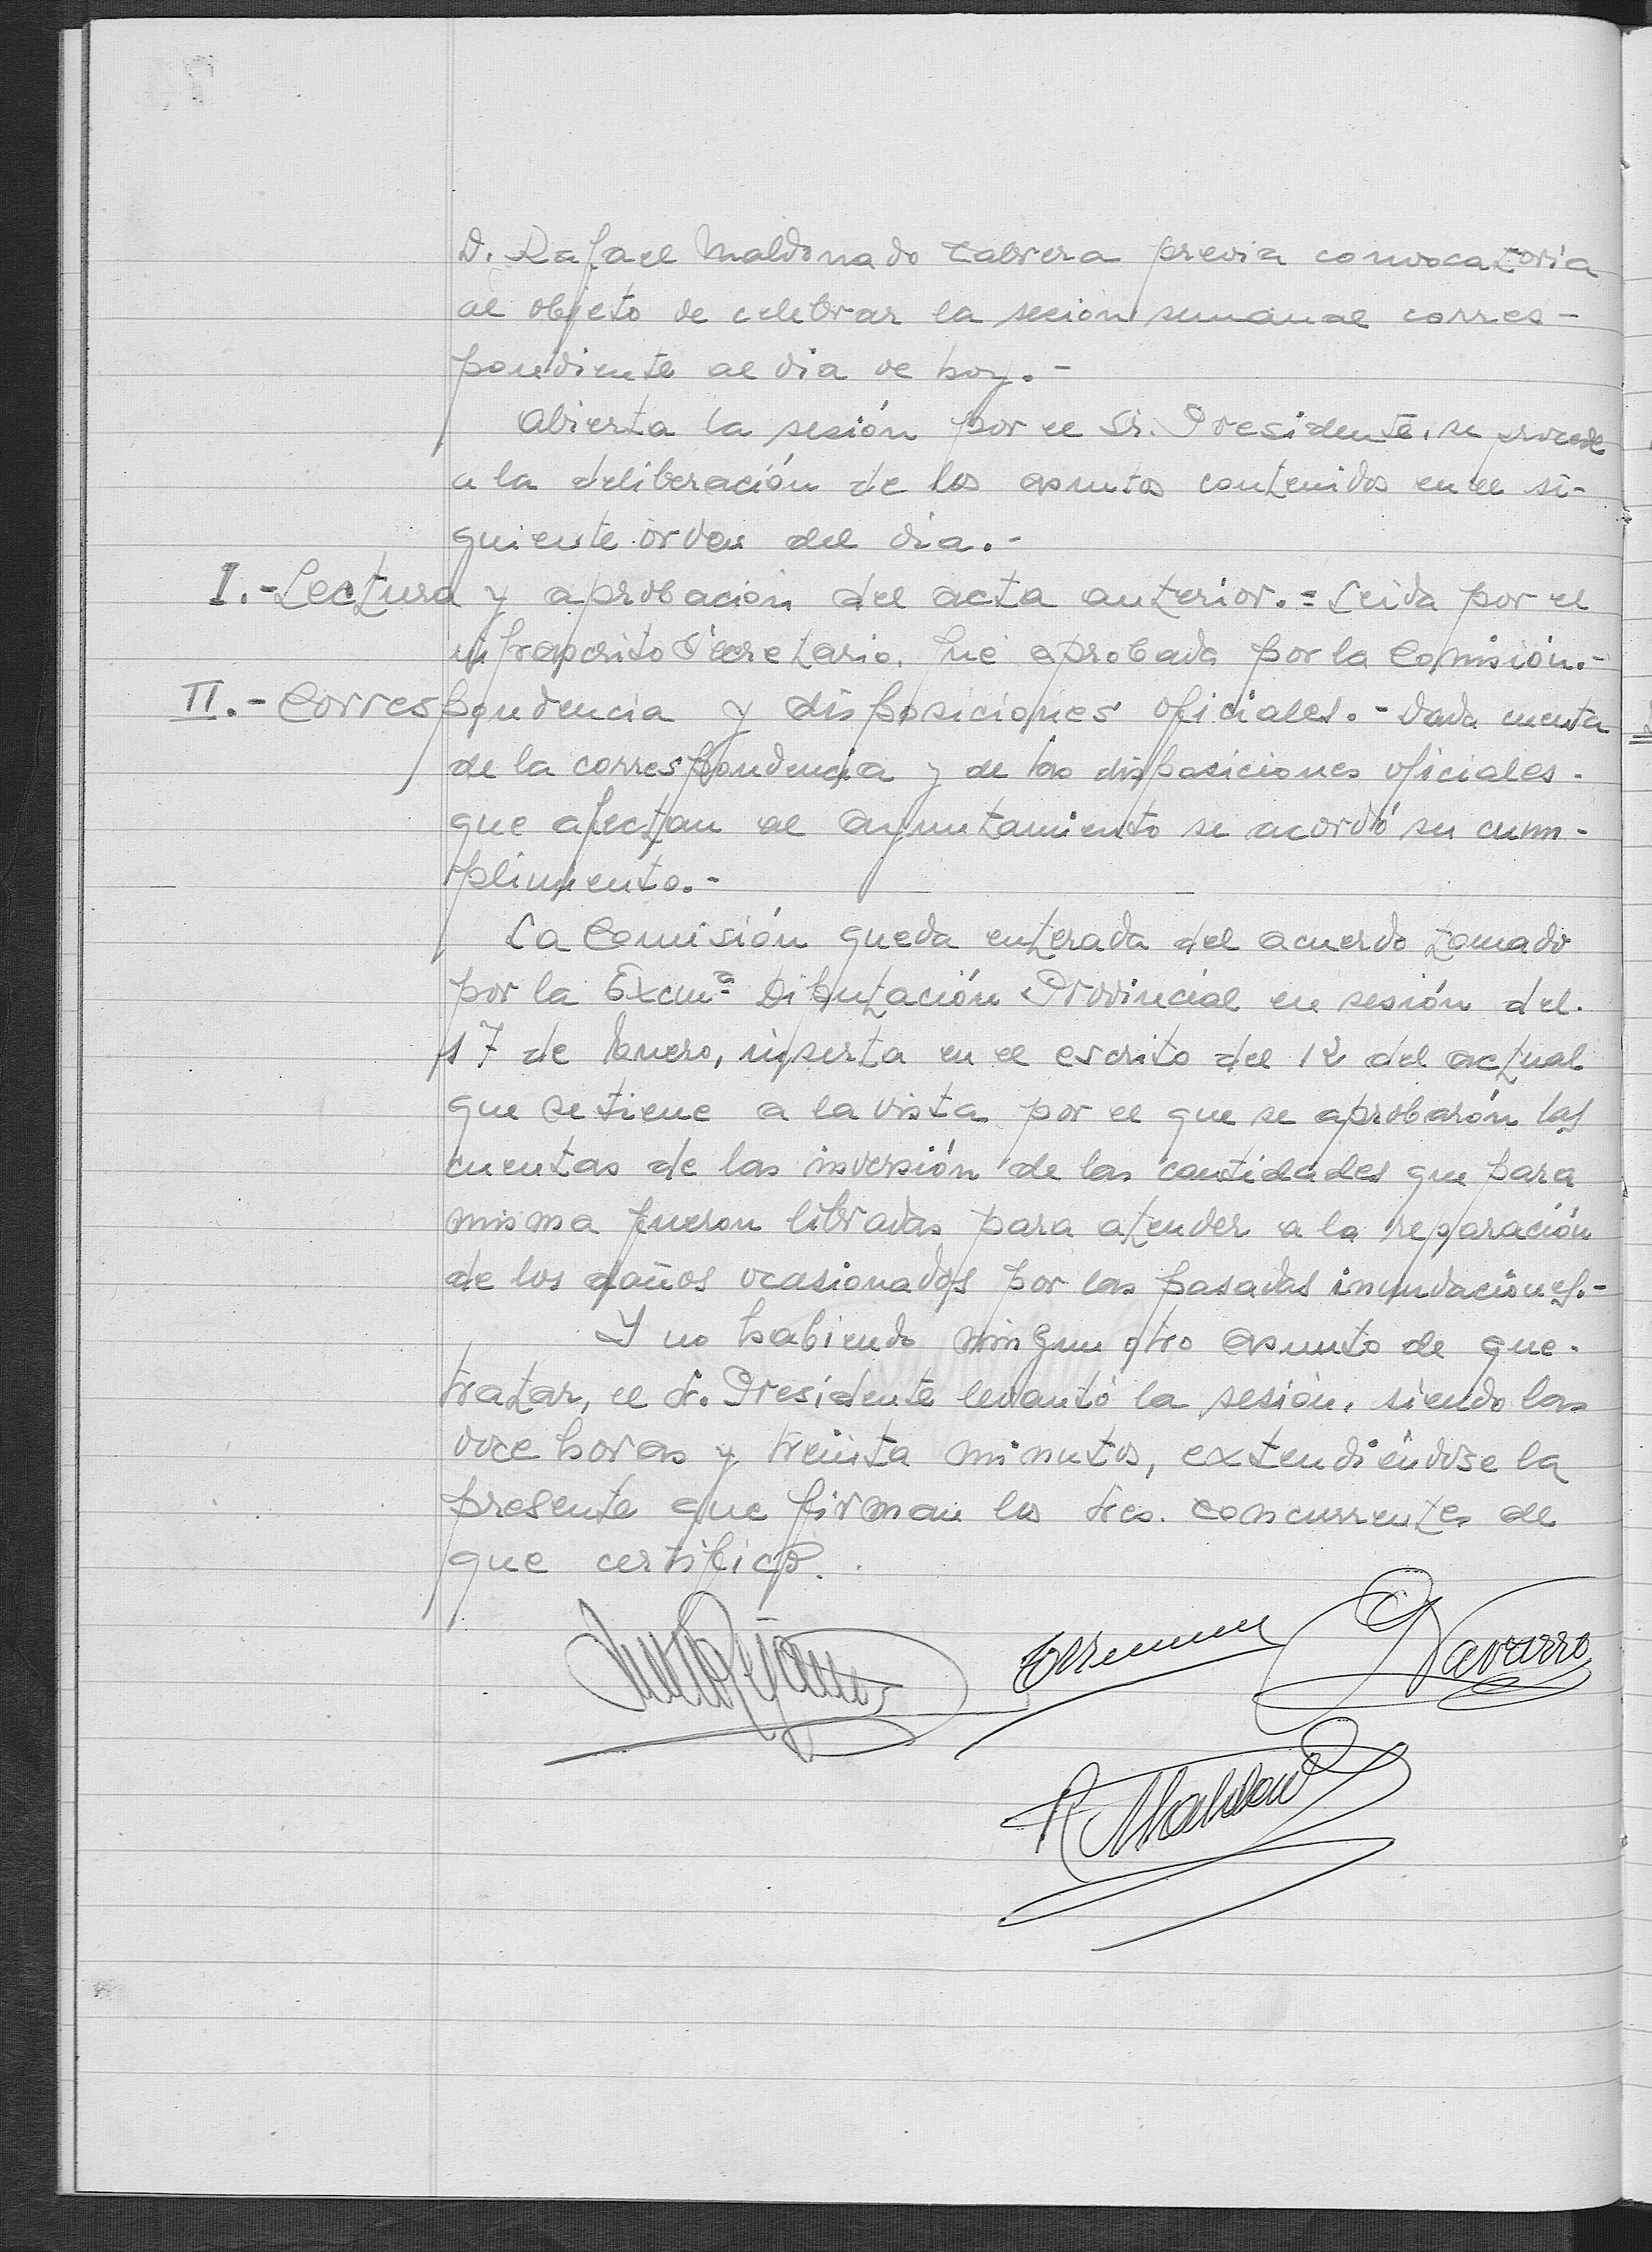 D. Rafael Maldonado Cabrera previa convocatoria
al objeto de celebrar la sesión semanal corres-
pondiente al dia de hoy.-
Abierta la sesión por el Sr. Presidente, se procede
a la deliberación de los asuntos contenidos en el si-
guiente órden del dia.-
I.- Lectura y aprobación del acta anterior.= Leida por el
infrascrito Secretario, fué aprobada por la Comisión.-
II.- Correspondencia y disposiciones oficiales.- Dada cuenta
de la correspondencia y de las disposiciones oficiales-
que afectan al Ayuntamiento se acordó su cum-
plimiento.-
La Comisión queda enterada del acuerdo tomado
por la Excmª Diputación Provincial en sesión del-
17 de Enero, inserta en el escrito del 12 del actual
que se tiene a la vista por el que se aprobarón las
cuentas de las inversión de las cantidades que para
misma fueron libradas para atender a la reparación
de los daños ocasionados por las pasadas inundaciones.-
Y no habiendo ningun otro asunto de que-
tratar, el Sr. Presidente levantó la sesión, siendo las
doce horas y treinta minutos, extendiéndose la
presente que firman los Sres. concurrentes de
que certifico.
Navarro
R Maldon